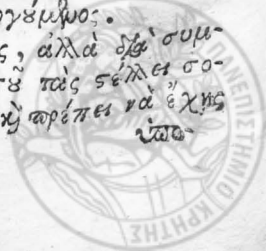 ογούμενος.
ς, ἀλλὰ διὰ συμ-
οῦ τὰς στέλλει σο-
κὴ πρέπει νὰ ἔχῃς
ὑπο-
ΠΑΝΕΠΙΣΤΗΜΙΟ ΚΡΗΤΗΣ